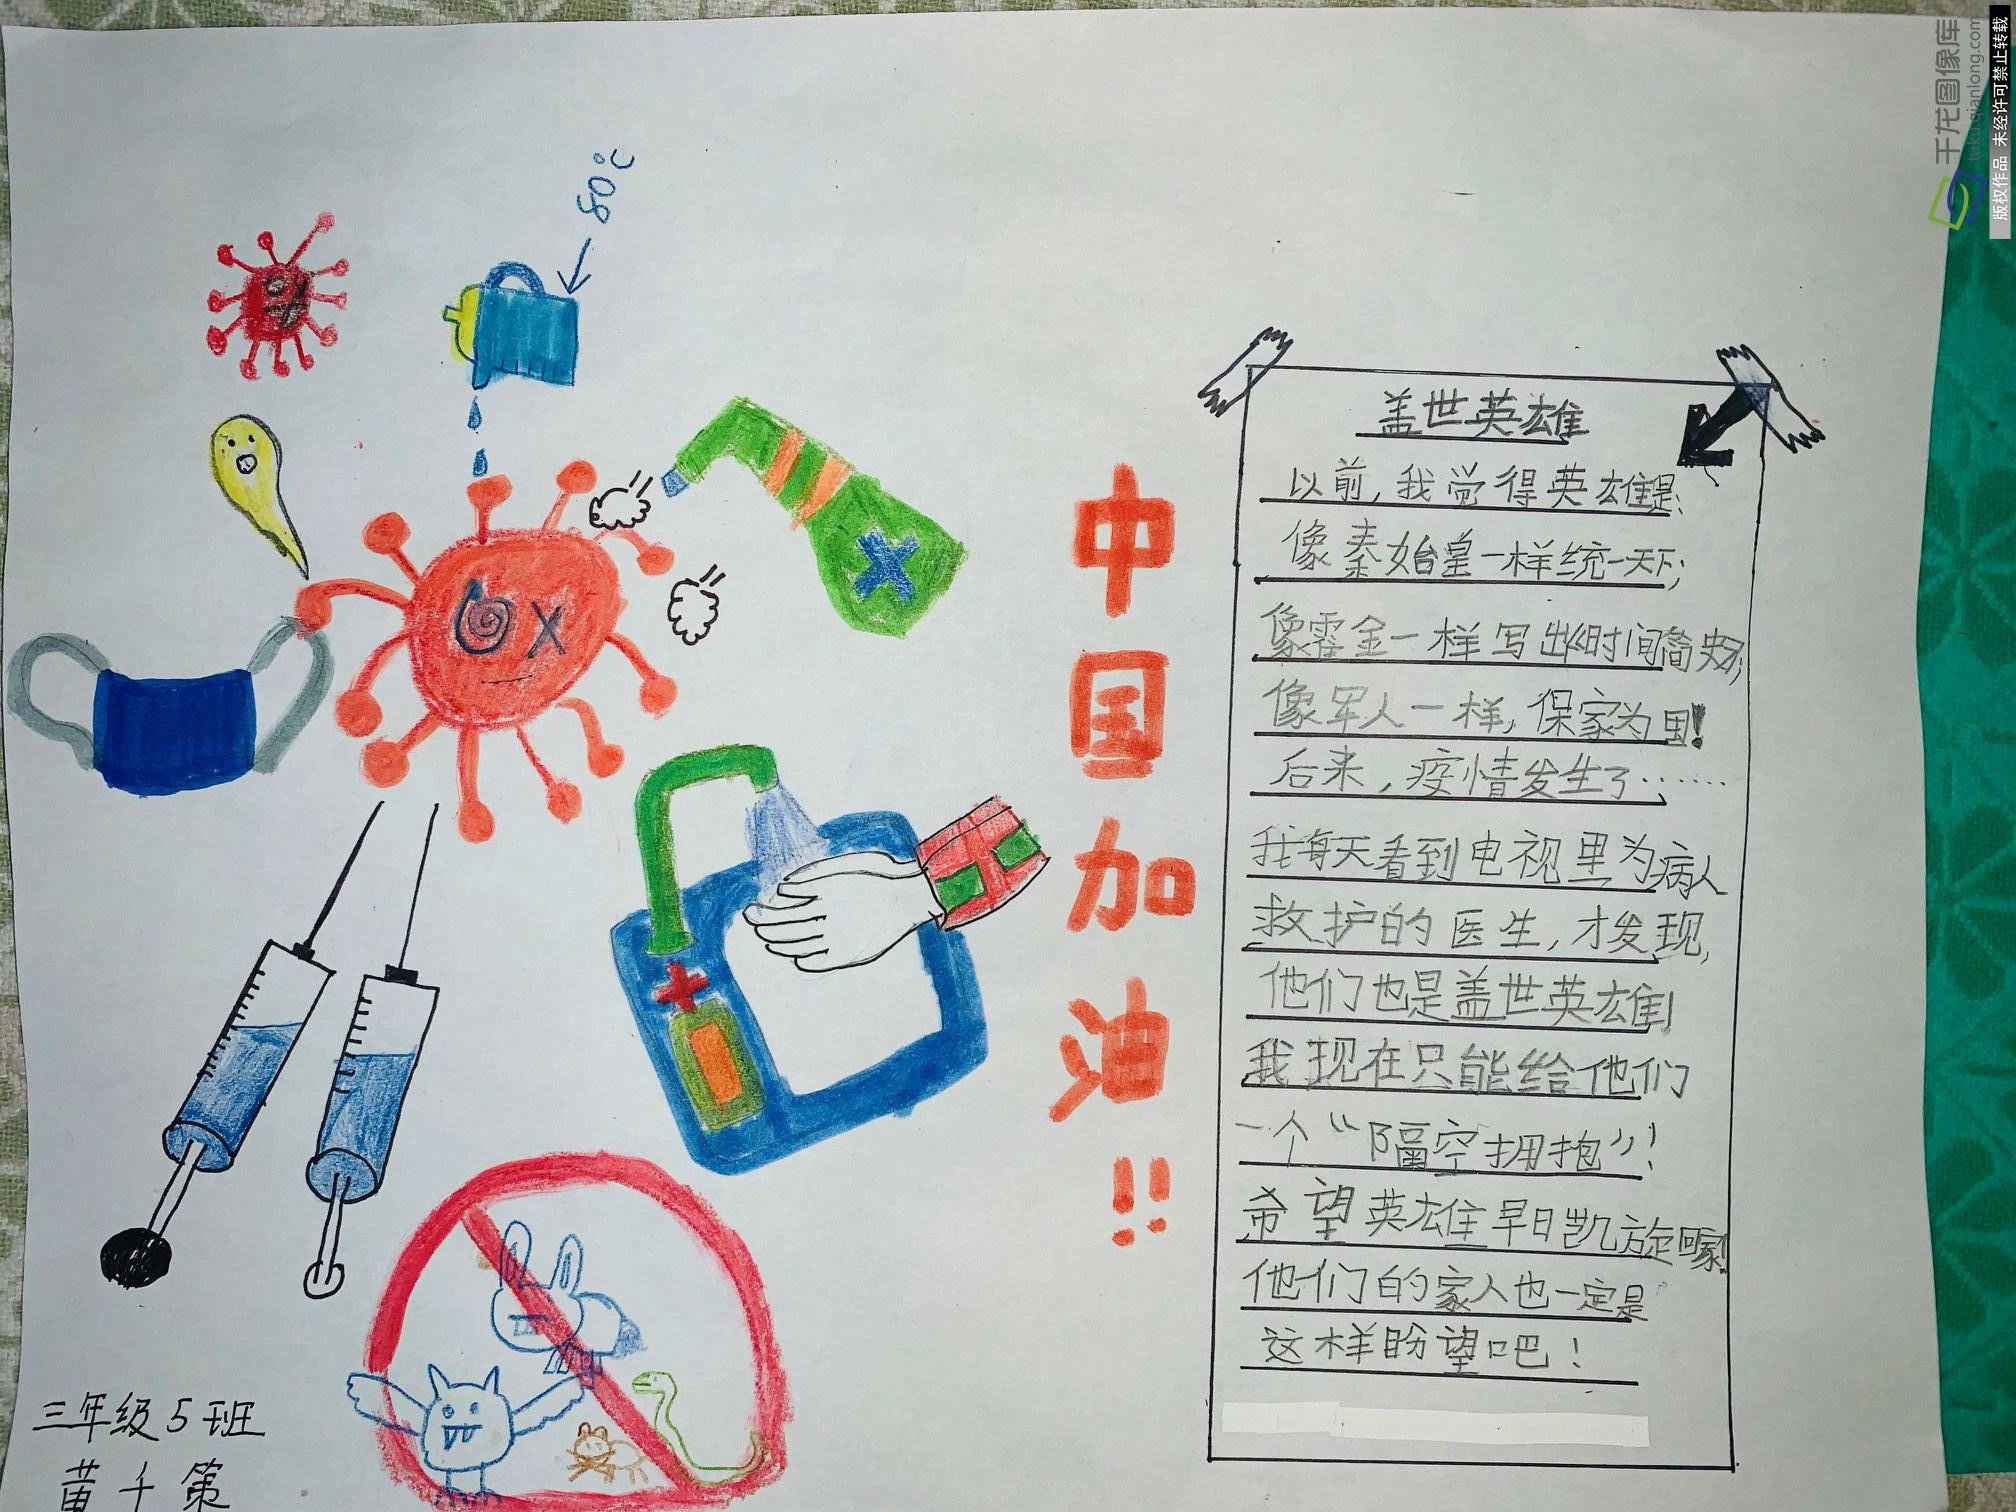 80℃
中国加油!!
盖世英雄
以前,我觉得英雄是:
像秦始皇一样统一天下;
像霍金一样写出《时间简史》;
像军人一样,保家为国!
后来,疫情发生了……
我每天看到电视里为病人
救护的医生,才发现,
他们也是盖世英雄!
我现在只能给他们
一个“隔空拥抱”!
希望英雄早日凯旋回家!
他们的家人也一定是
这样盼望吧!
三年级5班
黄千第
千龙图像库
tuku.qianlong.com
版权作品 未经许可禁止转载